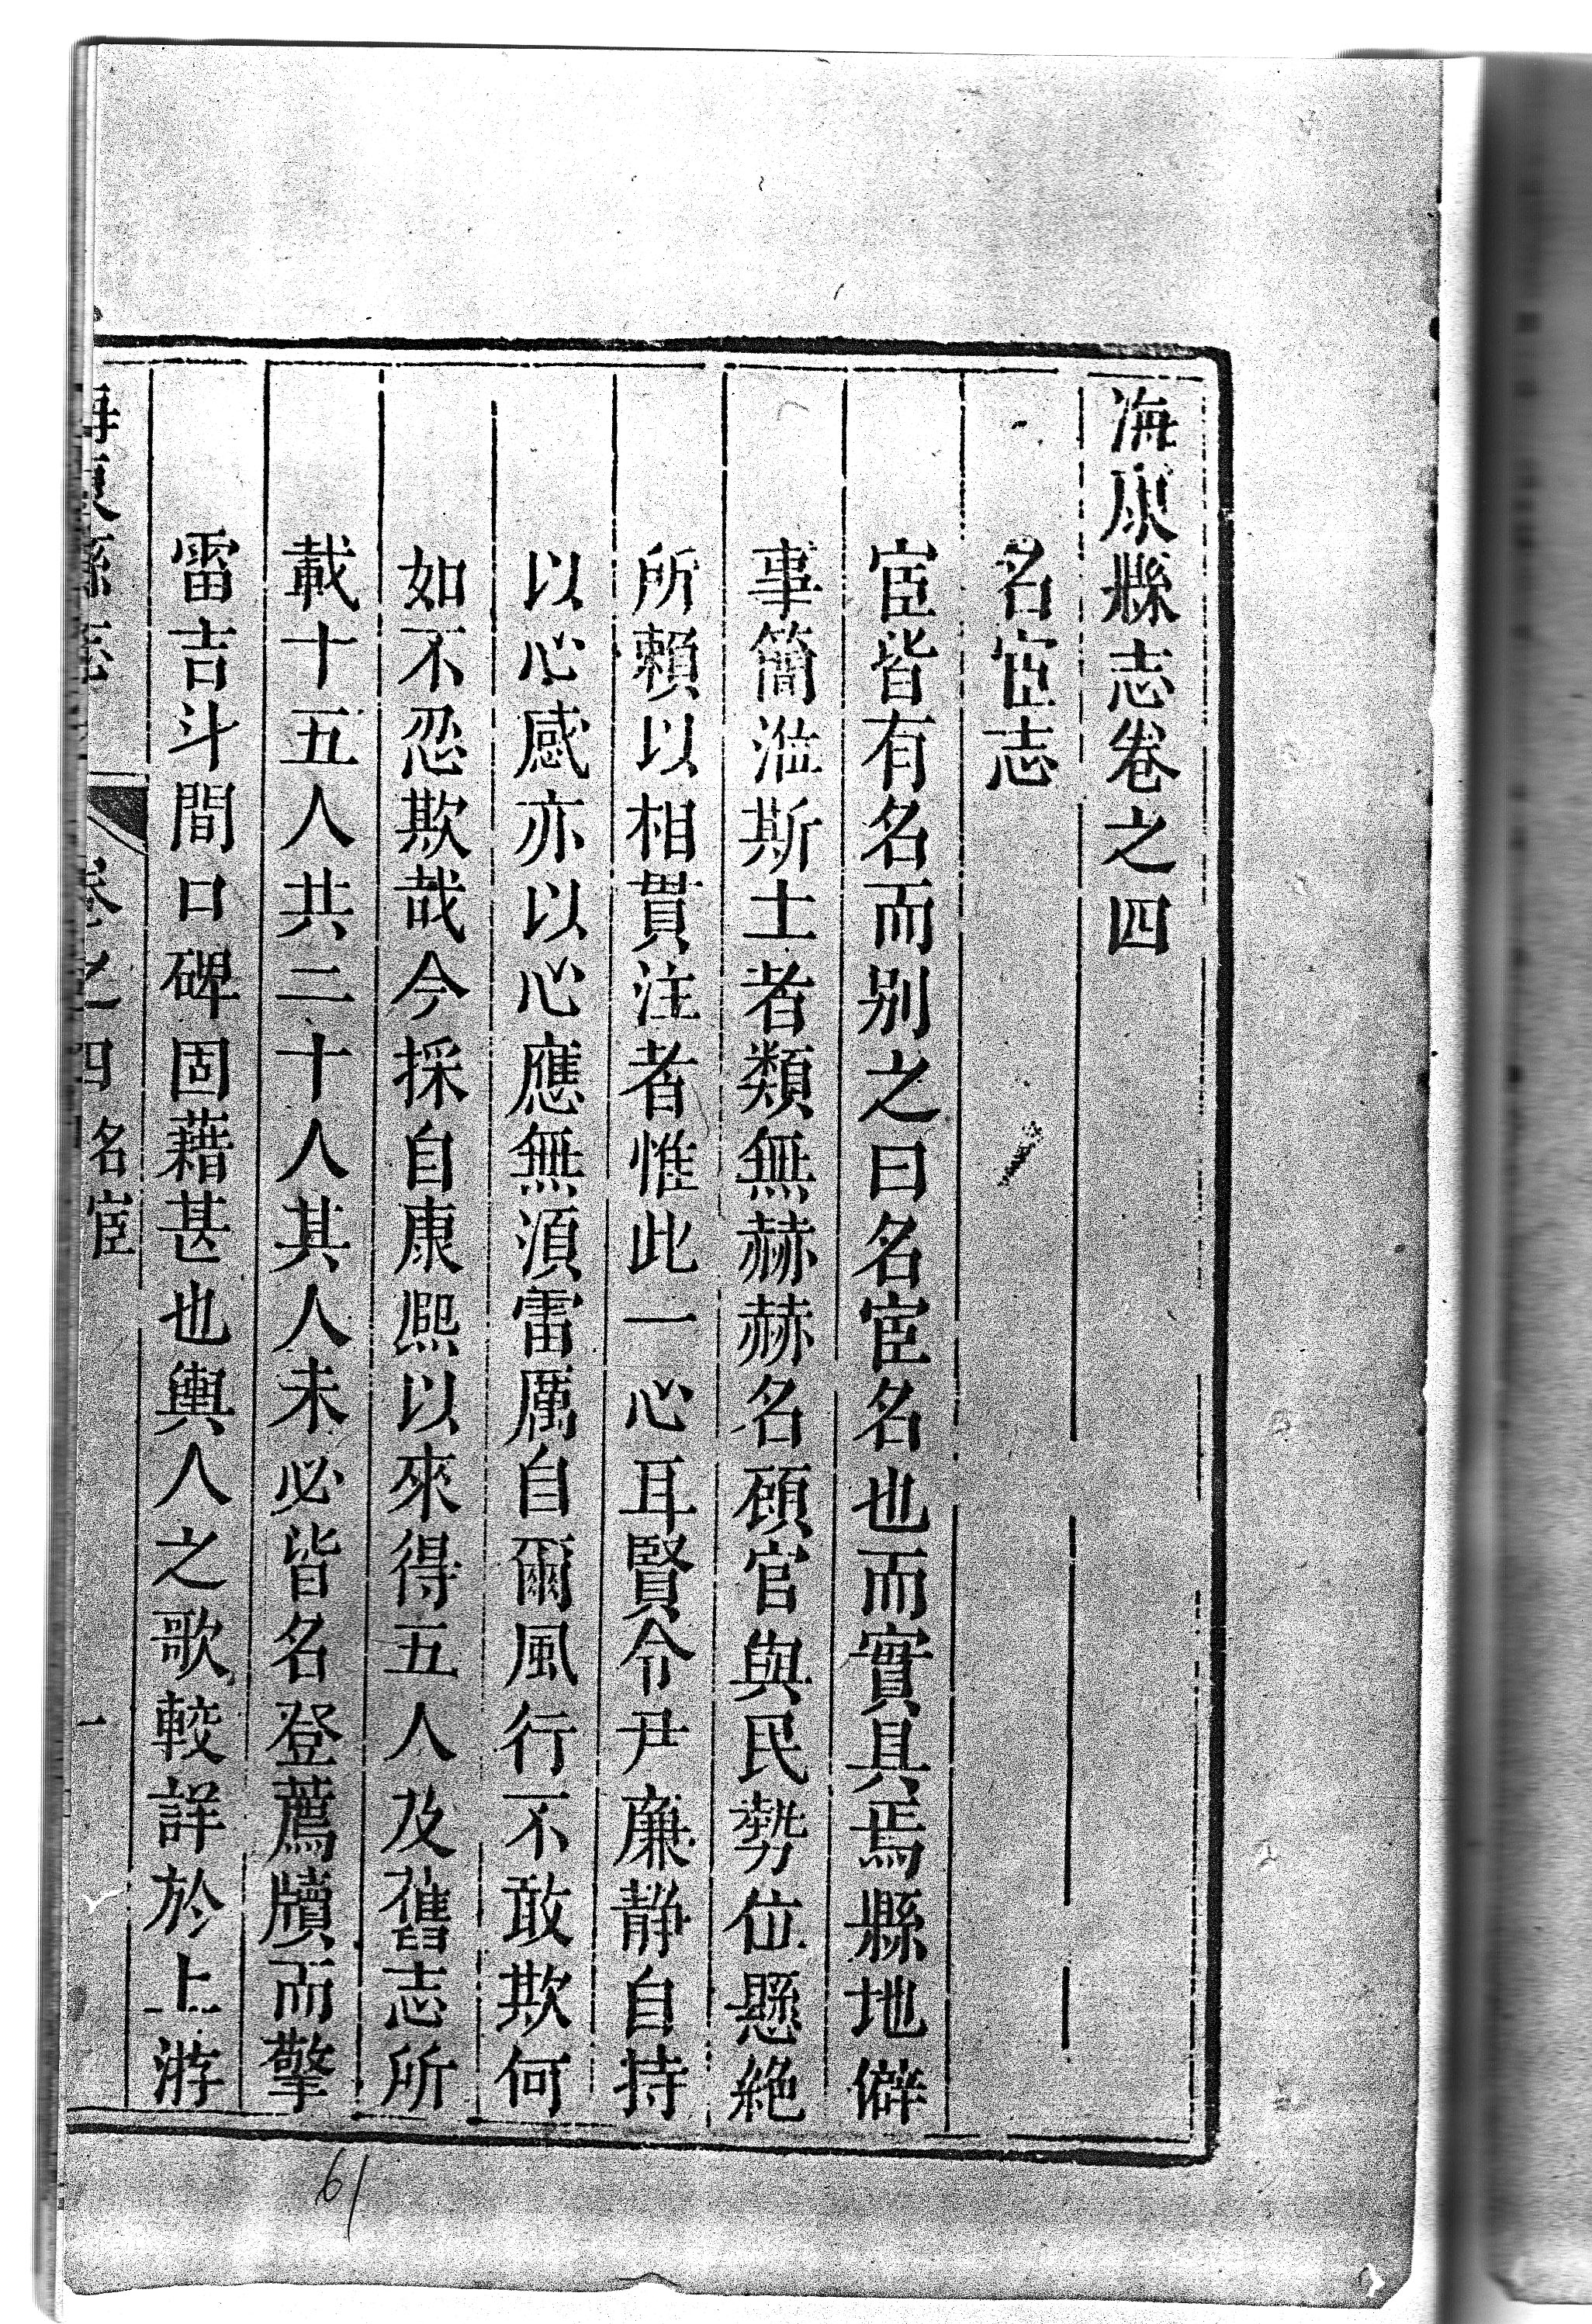 海康縣志卷之四
名宦志
宦皆有名而别之曰名宦名也而實具焉縣地僻
事簡涖斯土者類無赫赫名頋官與民勢位懸絶
所賴以相貫注者惟此一心耳賢令尹廉静自持
以心感亦以心應無湏雷厲自爾風行不敢欺何
如不忍欺哉今採自康熙以來得五人及舊志所
載十五人共二十人其人未必皆名登薦牘而擎
雷吉斗間口碑固藉甚也輿人之歌較詳於上游
海康縣志 卷之四 名宦 一
61